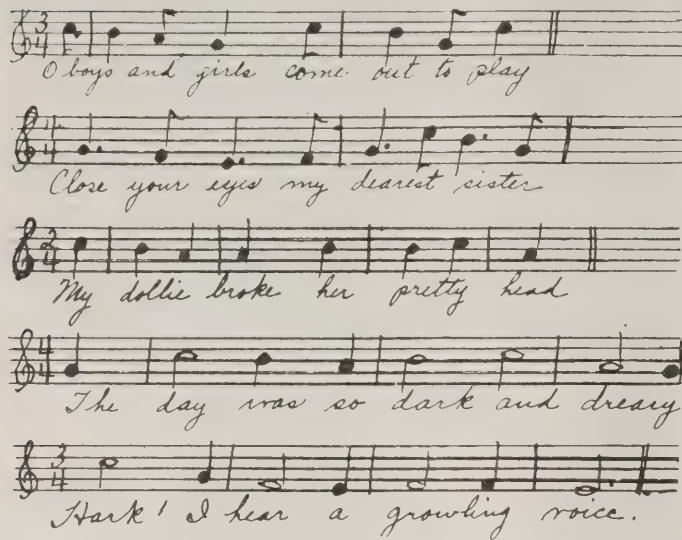 3 4
O boys and girls come out to play
4 4
Close your eyes my dearest sister
2 4
My dollie broke her pretty head
4 4
The day was so dark and dreary
3 4
Hark! I hear a growling voice.